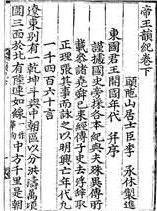 帝王韻紀卷下
頭陁山居士臣李承休製進
東國君王開國年代 幷序
謹據國史旁採各本紀與夫殊異傳所
載叅諸堯舜已來經傳子史去浮辭取
正理張其事而詠之以明興亡年代凡
一千四百六十言
遼東別有一乾坤斗與中朝區以分洪濤萬頃
圍三面於北有陸連如線中方千里是朝